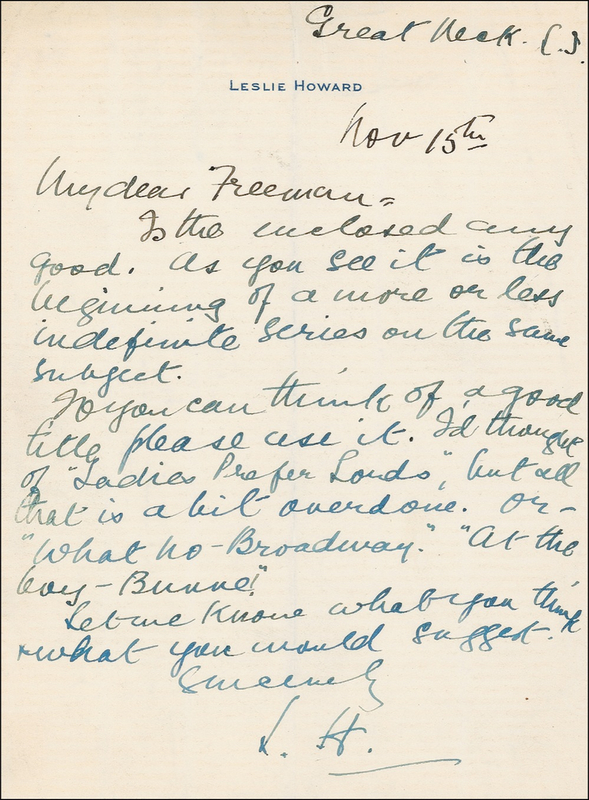 Great Neck. L.I.
LESLIE HOWARD
Nov 15th
My dear Freeman -
Is the enclosed any
good. As you see it is the
beginning of a more or less
indefinite series on the same
subject.
If you can think of a good
title, please use it. I'd thought
of "Ladies Prefer Lords", but all
that is a bit overdone. Or -
"What ho - Broadway." "At the
Let me know what you think
& what you would suggest.
Sincerely
L. H.